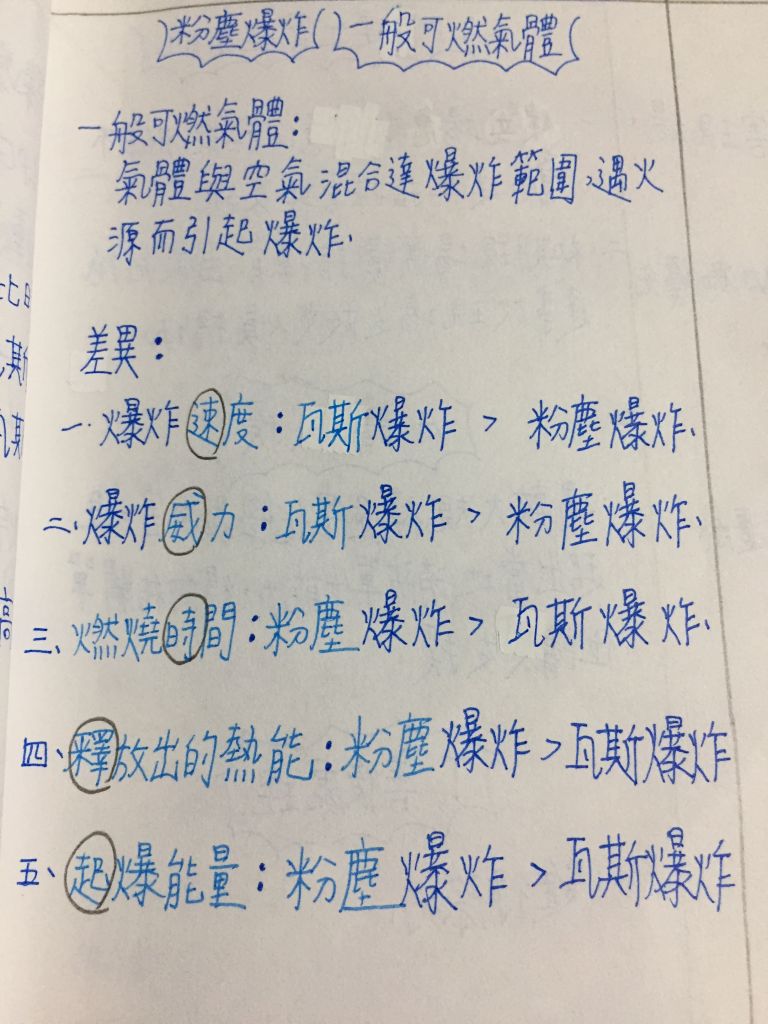 粉塵爆炸 一般可燃氣體
一般可燃氣體：
氣體與空氣混合達爆炸範圍，遇火
源而引起爆炸、
差異：
一、爆炸速度：瓦斯爆炸 > 粉塵爆炸、
二、爆炸威力：瓦斯爆炸 > 粉塵爆炸、
三、燃燒時間：粉塵爆炸 > 瓦斯爆炸、
四、釋放出的熱能：粉塵爆炸 > 瓦斯爆炸
五、起爆能量：粉塵爆炸 > 瓦斯爆炸